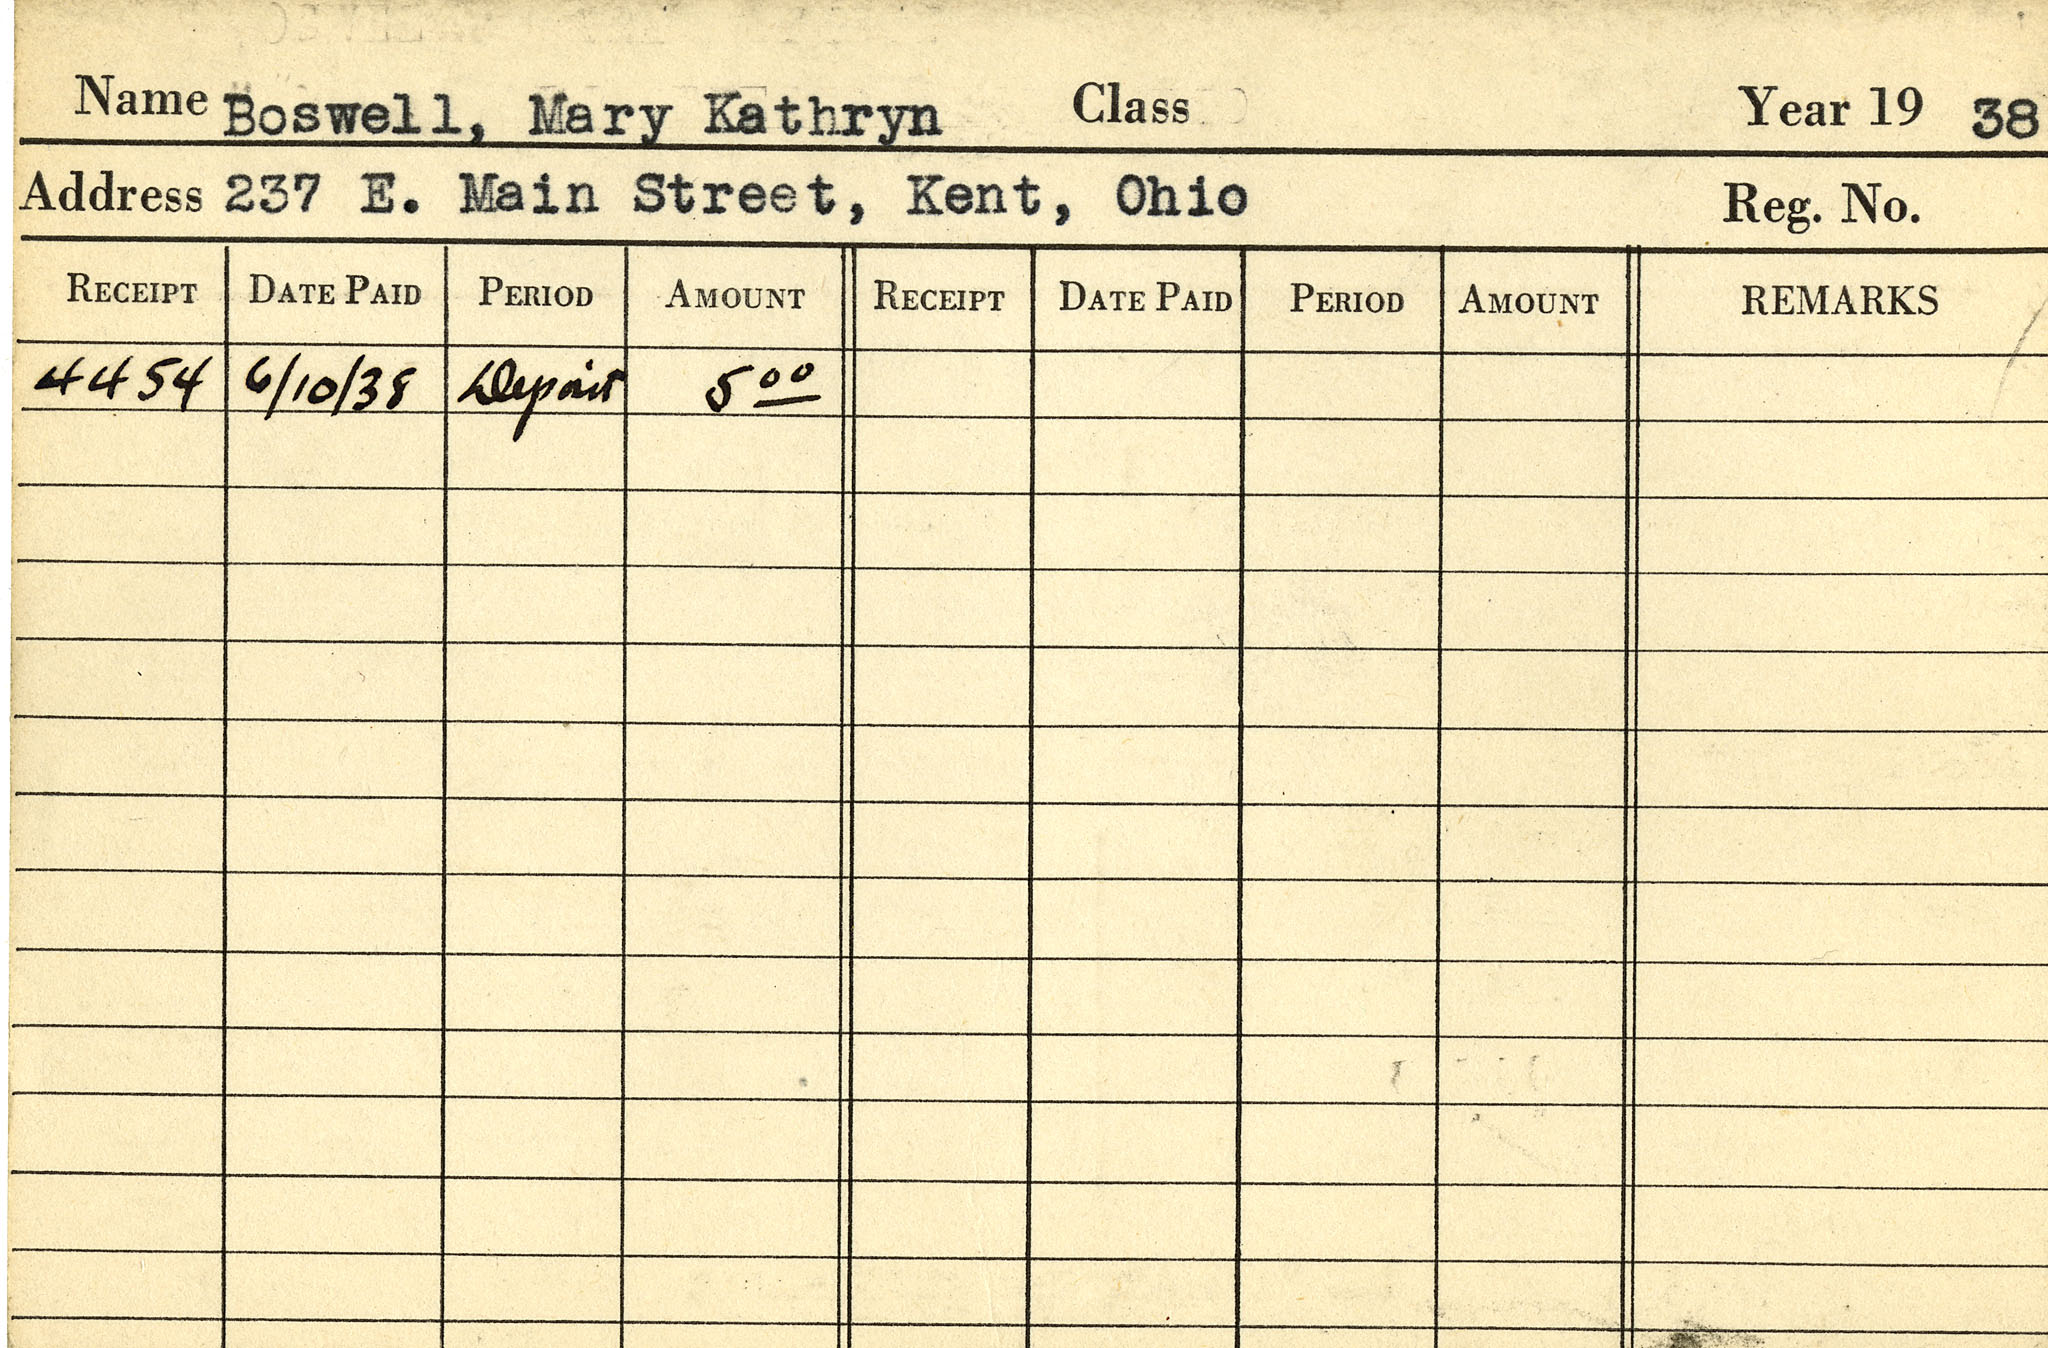 Name Boswell, Mary Kathryn Class Year 19 38
Address 237 E. Main Street, Kent, Ohio Reg. No.
RECEIPT DATE PAID PERIOD AMOUNT RECEIPT DATE PAID PERIOD AMOUNT REMARKS
4454 6/10/38 Deposit 5 00